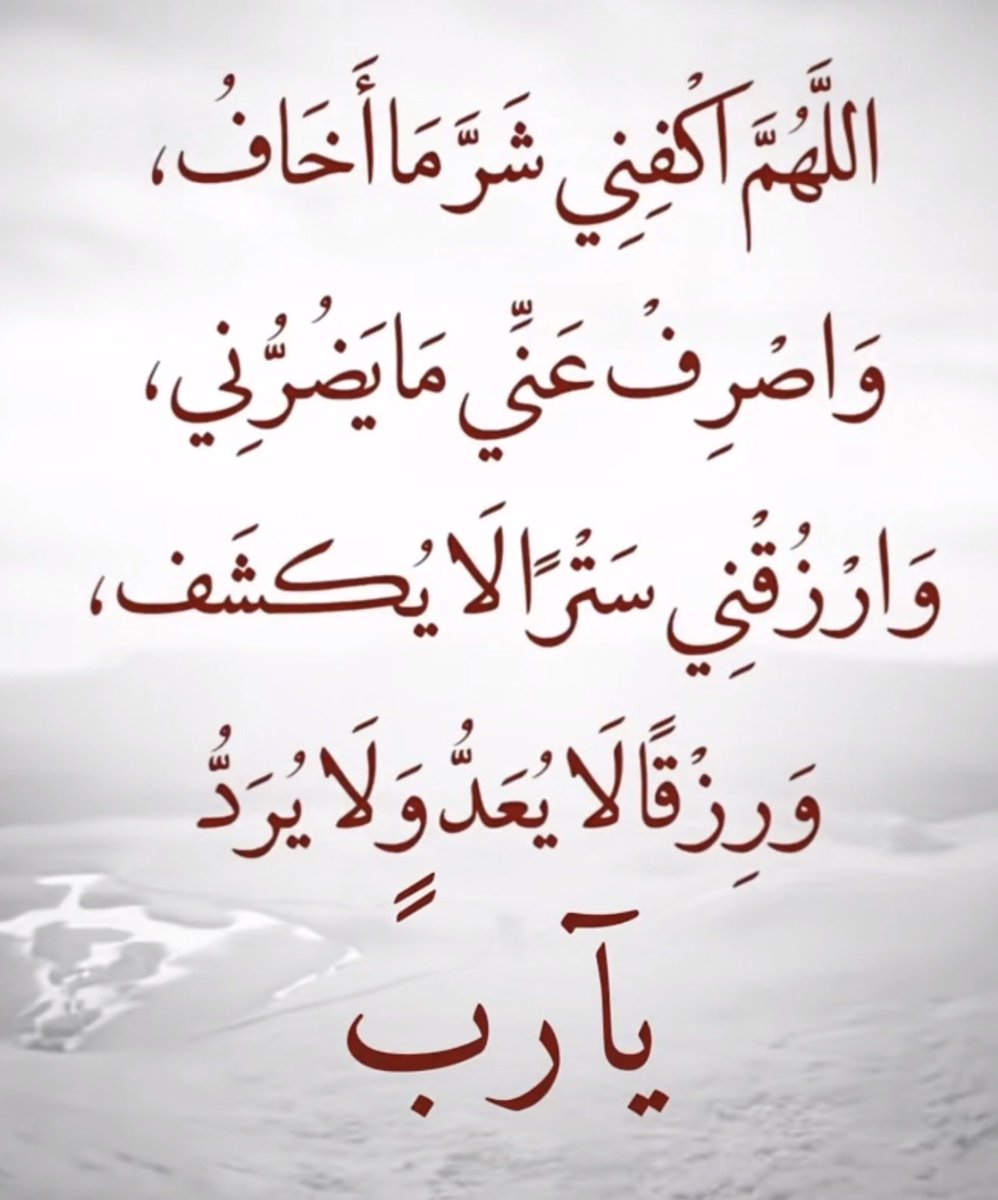 اللَّهُمَّ اكْفِنِي شَرَّ مَا أَخَافُ،
وَاصْرِفْ عَنِّي مَا يَضُرُّنِي،
وَارْزُقْنِي سَتْرًا لَا يُكشَف،
وَرِزْقًا لَا يُعَدُّ وَلَا يُرَدُّ
يآربً